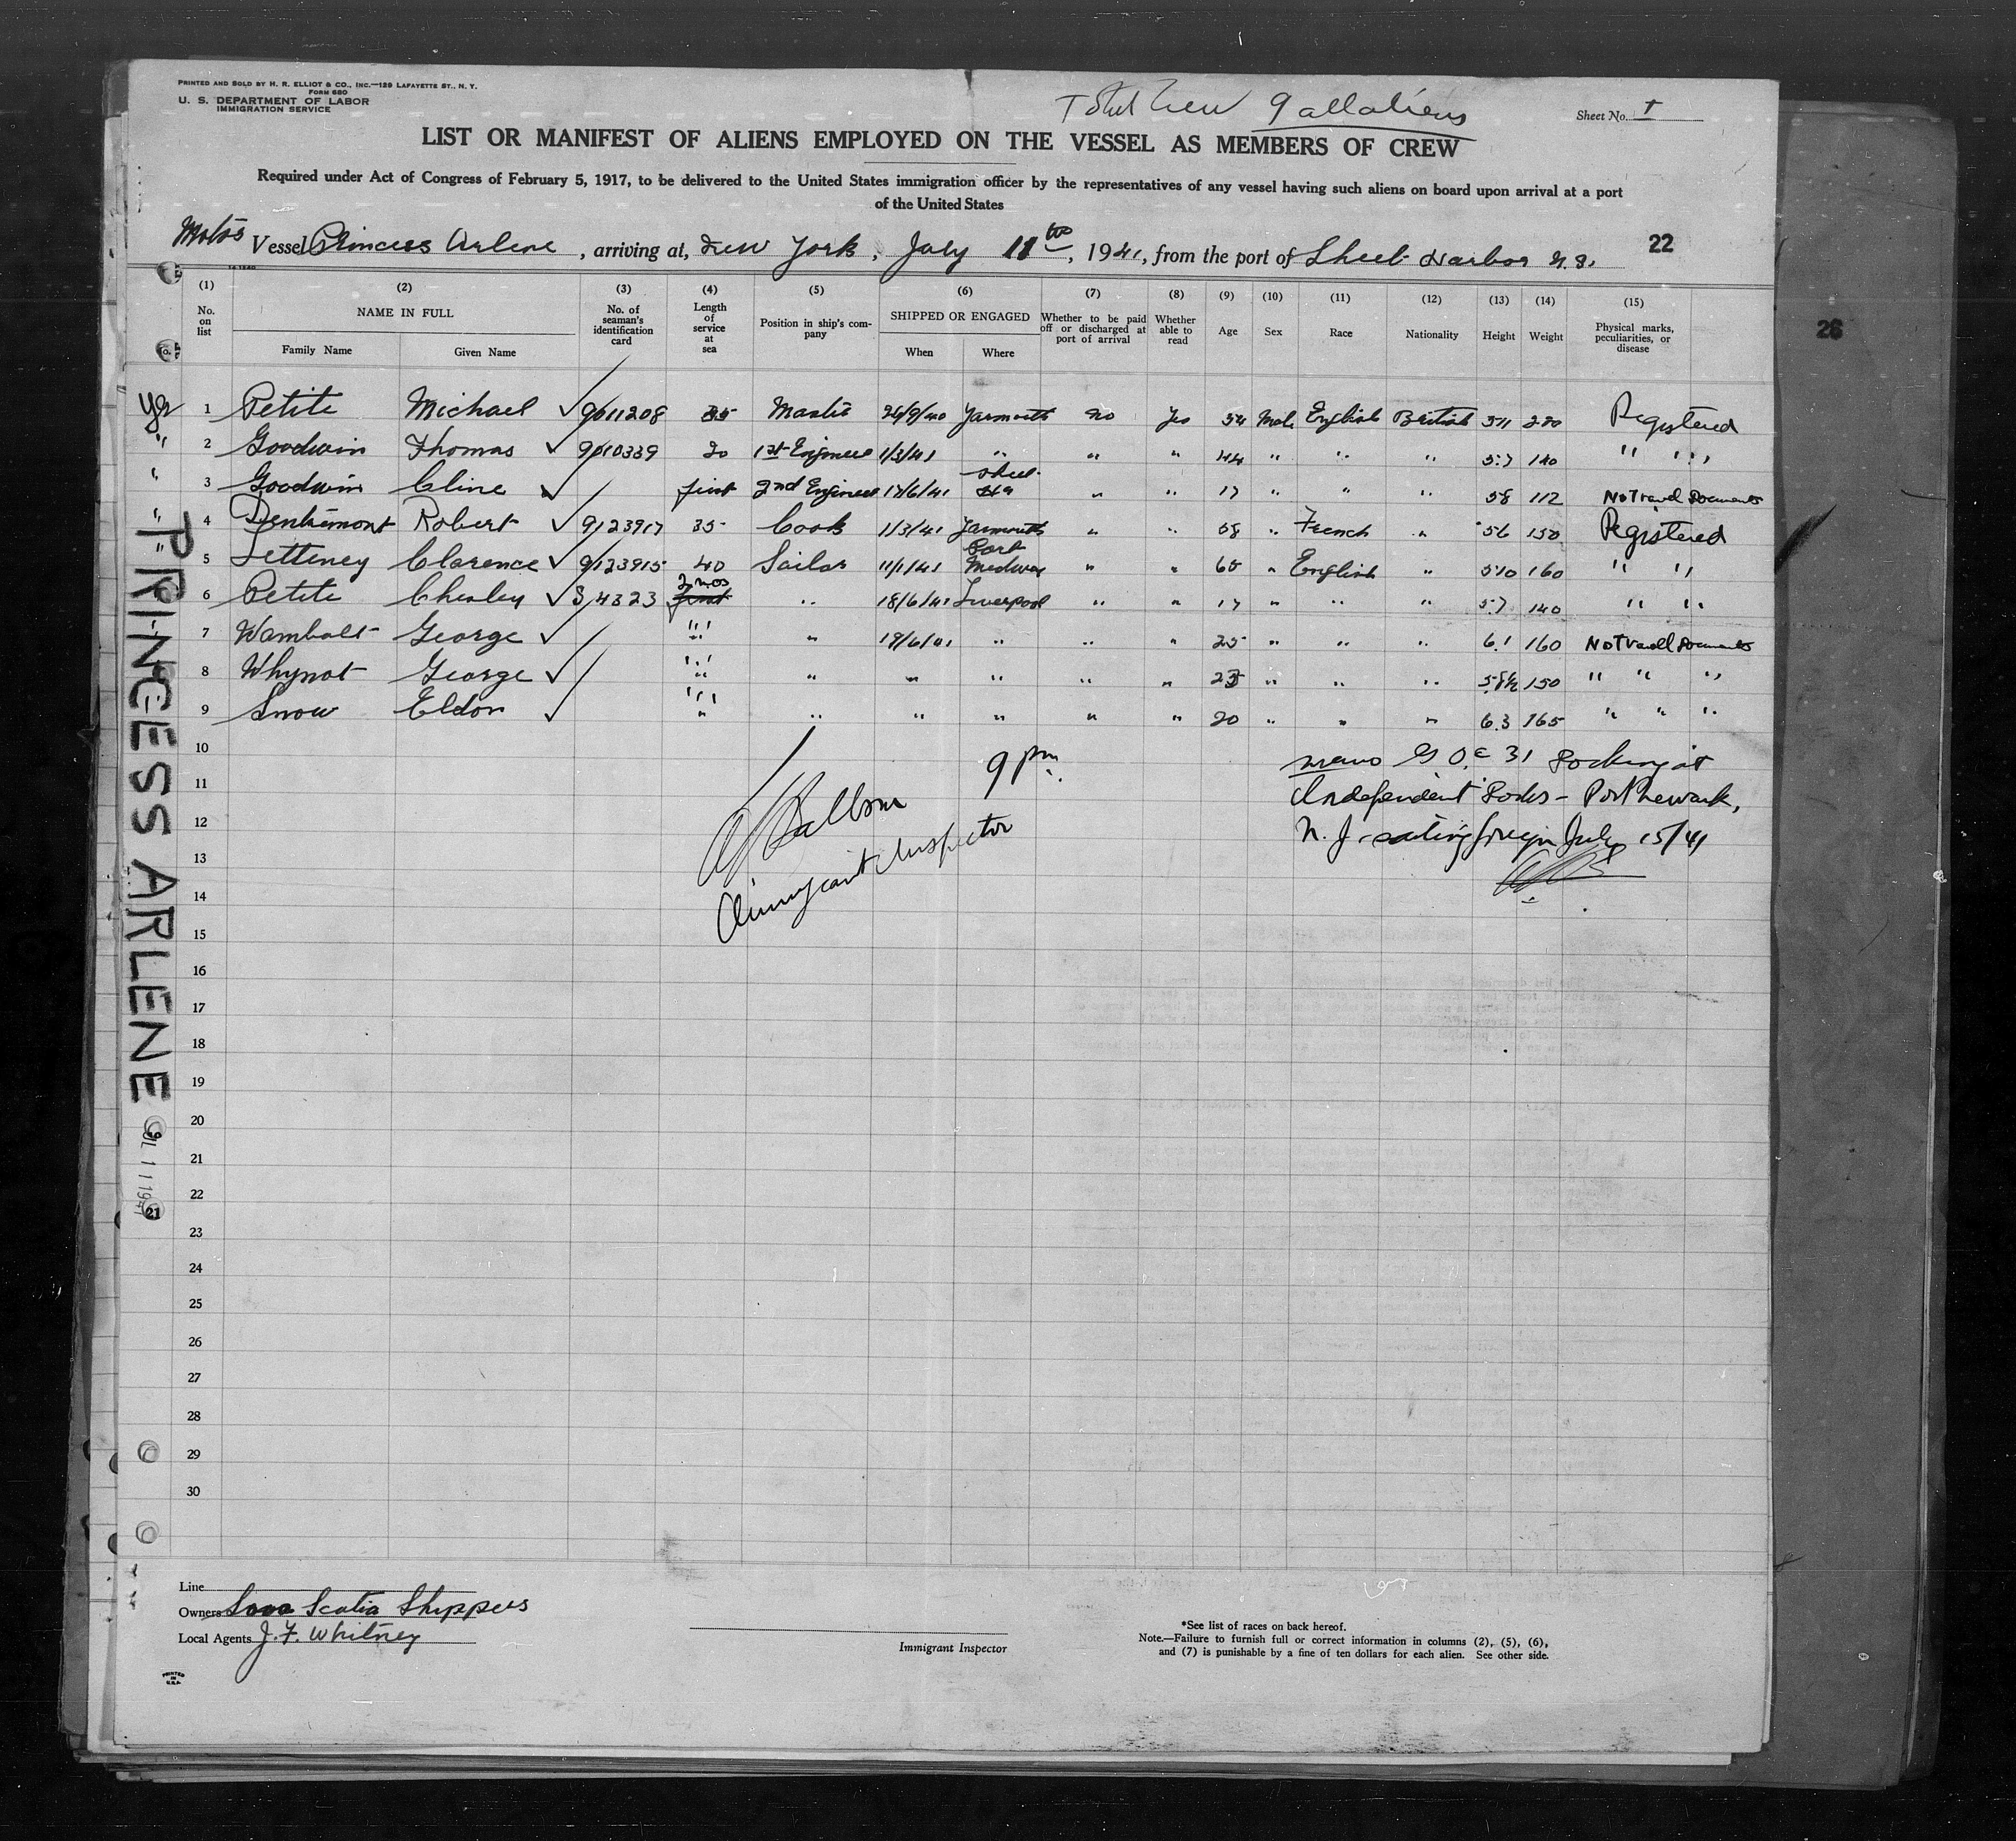 PRINTED AND SOLD BY H. R. ELLIOT & CO., INC.—129 LAFAYETTE ST., N. Y.
FORM 680
U. S. DEPARTMENT OF LABOR
IMMIGRATION SERVICE
Total Crew 9 all aliens
Sheet No. 1
LIST OR MANIFEST OF ALIENS EMPLOYED ON THE VESSEL AS MEMBERS OF CREW
Required under Act of Congress of February 5, 1917, to be delivered to the United States immigration officer by the representatives of any vessel having such aliens on board upon arrival at a port
of the United States
Vessel Princess Arlene, arriving at, New York, July 11th, 1941, from the port of Sheet Harbor N.S.
22
26
14-1240
(1) (2) (3) (4) (5) (6) (7) (8) (9) (10) (11) (12) (13) (14) (15)
No. on list
NAME IN FULL
Family Name Given Name
No. of seaman's identification card
Length of service at sea
Position in ship's company
SHIPPED OR ENGAGED
When Where
Whether to be paid off or discharged at port of arrival
Whether able to read
Age Sex Race Nationality Height Weight
Physical marks, peculiarities, or disease
yes 1 Petite Michael 9011208 35 Master 26/9/40 Yarmouth no yes 54 Male English British 5 11 220 Registered
" 2 Goodwin Thomas 9010339 20 1st Engineer 1/3/41 " " " 44 " " " 5.7 140 " "
" 3 Goodwin Cline first 2nd Engineer 17/6/41 Sheet Ha " " 17 " " " 5 8 112 No Travel Documents
" 4 Dentremont Robert 9123917 35 Cook 1/3/41 Yarmouth " " 58 " French " 5 6 150 Registered
" 5 Letteney Clarence 9123915 40 Sailor 11/1/41 Port Medway " " 65 " English " 5 10 160 " "
6 Petite Chesley S/4323 2 mos first " 18/6/41 Liverpool " " 17 " " " 5.7 140 " "
7 Wambolt George " " 19/6/41 " " " 25 " " " 6.1 160 No Travell Documents
8 Whynot George " " " " " " 23 " " " 5.8½ 150 " " "
9 Snow Eldon " " " " " " 20 " " " 6.3 165 " " "
10
11
12
13
14
15
16
17
18
19
20
21
22
23
24
25
26
27
28
29
30
9 pm
Immigrant Inspector
memo docking at
Independent Docks – Port Newark,
N. J. sailing foreign July 15/41
PRINCESS ARLENE
JUL 11 1941
21
Line
Owners Nova Scotia Shippers
Local Agents J. F. Whitney
Immigrant Inspector
*See list of races on back hereof.
Note.—Failure to furnish full or correct information in columns (2), (5), (6),
and (7) is punishable by a fine of ten dollars for each alien. See other side.
PRINTED IN U.S.A.